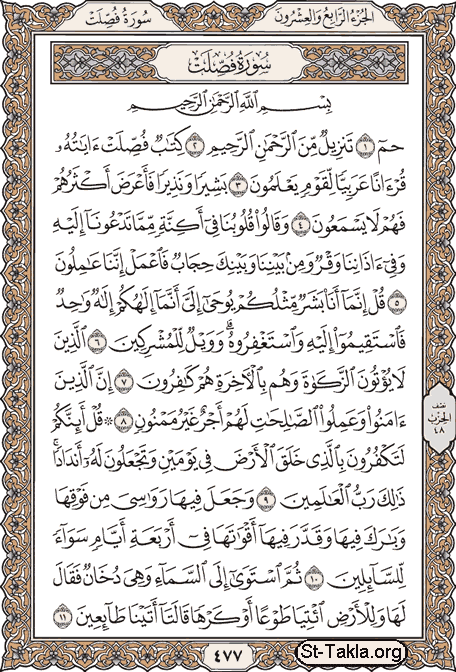 الجزء الرابع والعشرون
سورة فصلت
سُورَةُ فُصِّلَتْ
بِسْمِ اللَّهِ الرَّحْمَٰنِ الرَّحِيمِ
حمٓ ١ تَنزِيلٌ مِّنَ الرَّحْمَٰنِ الرَّحِيمِ ٢ كِتَٰبٌ فُصِّلَتْ ءَايَٰتُهُۥ
قُرْءَانًا عَرَبِيًّا لِّقَوْمٍ يَعْلَمُونَ ٣ بَشِيرًا وَنَذِيرًا فَأَعْرَضَ أَكْثَرُهُمْ
فَهُمْ لَا يَسْمَعُونَ ٤ وَقَالُوا۟ قُلُوبُنَا فِىٓ أَكِنَّةٍ مِّمَّا تَدْعُونَآ إِلَيْهِ
وَفِىٓ ءَاذَانِنَا وَقْرٌ وَمِنۢ بَيْنِنَا وَبَيْنِكَ حِجَابٌ فَٱعْمَلْ إِنَّنَا عَٰمِلُونَ
٥ قُلْ إِنَّمَآ أَنَا۠ بَشَرٌ مِّثْلُكُمْ يُوحَىٰٓ إِلَىَّ أَنَّمَآ إِلَٰهُكُمْ إِلَٰهٌ وَٰحِدٌ
فَٱسْتَقِيمُوٓا۟ إِلَيْهِ وَٱسْتَغْفِرُوهُ ۗ وَوَيْلٌ لِّلْمُشْرِكِينَ ٦ ٱلَّذِينَ
لَا يُؤْتُونَ ٱلزَّكَوٰةَ وَهُم بِٱلْءَاخِرَةِ هُمْ كَٰفِرُونَ ٧ إِنَّ ٱلَّذِينَ
ءَامَنُوا۟ وَعَمِلُوا۟ ٱلصَّٰلِحَٰتِ لَهُمْ أَجْرٌ غَيْرُ مَمْنُونٍ ٨ ۞ قُلْ أَئِنَّكُمْ
لَتَكْفُرُونَ بِٱلَّذِى خَلَقَ ٱلْأَرْضَ فِى يَوْمَيْنِ وَتَجْعَلُونَ لَهُۥٓ أَندَادًا ۚ
ذَٰلِكَ رَبُّ ٱلْعَٰلَمِينَ ٩ وَجَعَلَ فِيهَا رَوَٰسِىَ مِن فَوْقِهَا
وَبَٰرَكَ فِيهَا وَقَدَّرَ فِيهَآ أَقْوَٰتَهَا فِىٓ أَرْبَعَةِ أَيَّامٍ سَوَآءً
لِّلسَّآئِلِينَ ١٠ ثُمَّ ٱسْتَوَىٰٓ إِلَى ٱلسَّمَآءِ وَهِىَ دُخَانٌ فَقَالَ
لَهَا وَلِلْأَرْضِ ٱئْتِيَا طَوْعًا أَوْ كَرْهًا قَالَتَآ أَتَيْنَا طَآئِعِينَ ١١
نصف
الحزب
٤٨
٤٧٧
St-Takla.org